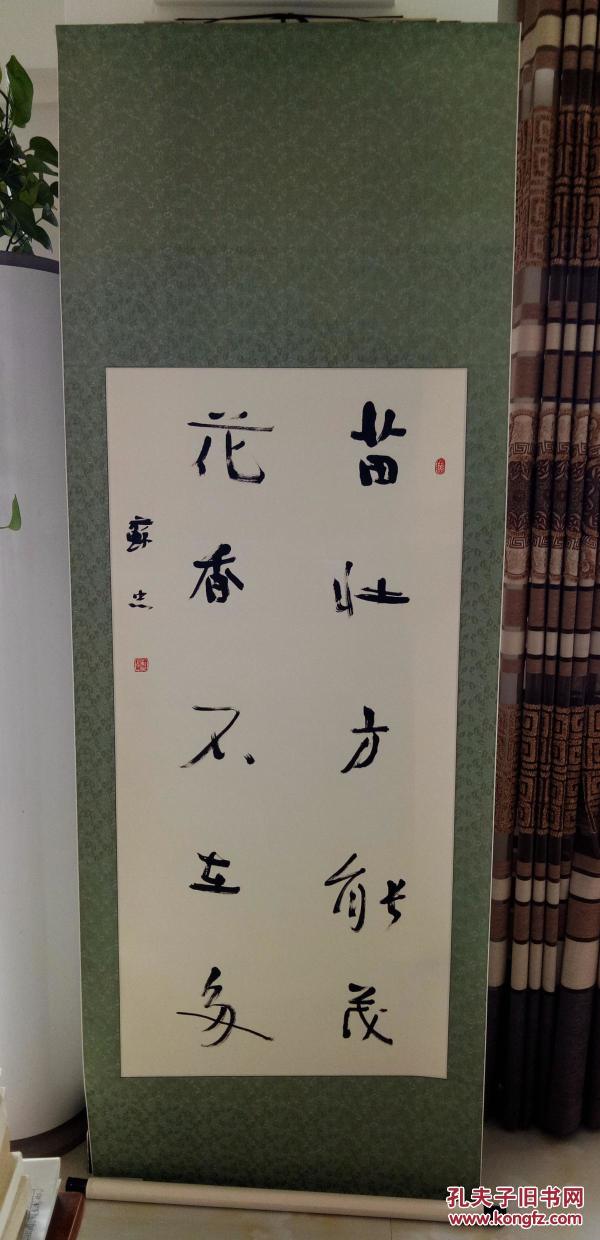 苗壮方能茂
花香不在多
孔夫子旧书网
www.kongfz.com